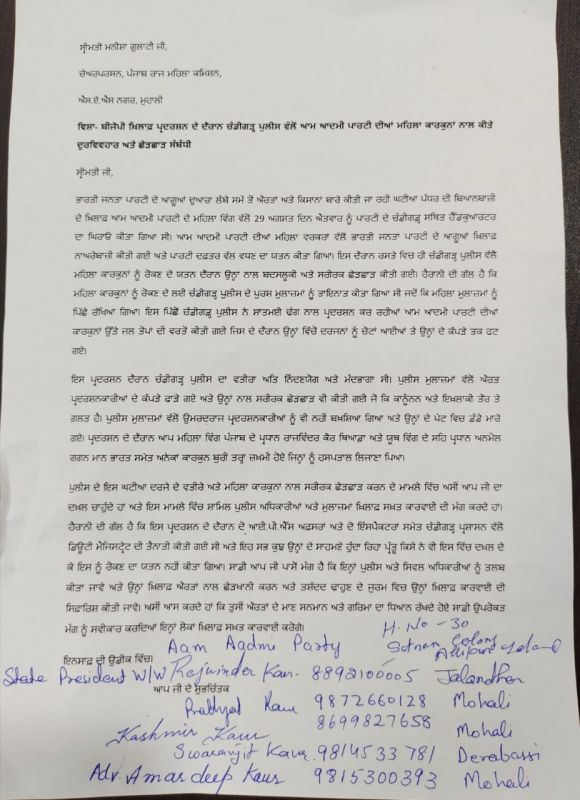 ਸ਼੍ਰੀਮਤੀ ਮਨੀਸ਼ਾ ਗੁਲਾਟੀ ਜੀ,
ਚੇਅਰਪਰਸਨ, ਪੰਜਾਬ ਰਾਜ ਮਹਿਲਾ ਕਮਿਸ਼ਨ,
ਐਸ.ਏ.ਐਸ ਨਗਰ, ਮੁਹਾਲੀ
ਵਿਸ਼ਾ- ਬੀਜੇਪੀ ਖ਼ਿਲਾਫ਼ ਪ੍ਰਦਰਸ਼ਨ ਦੇ ਦੌਰਾਨ ਚੰਡੀਗੜ੍ਹ ਪੁਲੀਸ ਵੱਲੋਂ ਆਮ ਆਦਮੀ ਪਾਰਟੀ ਦੀਆਂ ਮਹਿਲਾ ਕਾਰਕੁਨਾਂ ਨਾਲ ਕੀਤੇ
ਦੁਰਵਿਵਹਾਰ ਅਤੇ ਛੇੜਛਾੜ ਸੰਬੰਧੀ
ਸ਼੍ਰੀਮਤੀ ਜੀ,
ਭਾਰਤੀ ਜਨਤਾ ਪਾਰਟੀ ਦੇ ਆਗੂਆਂ ਦੁਆਰਾ ਲੰਬੇ ਸਮੇਂ ਤੋਂ ਔਰਤਾਂ ਅਤੇ ਕਿਸਾਨਾਂ ਬਾਰੇ ਕੀਤੀ ਜਾ ਰਹੀ ਘਟੀਆ ਪੱਧਰ ਦੀ ਬਿਆਨਬਾਜ਼ੀ
ਦੇ ਖ਼ਿਲਾਫ਼ ਆਮ ਆਦਮੀ ਪਾਰਟੀ ਦੇ ਮਹਿਲਾ ਵਿੰਗ ਵੱਲੋਂ 29 ਅਗਸਤ ਦਿਨ ਐਤਵਾਰ ਨੂੰ ਪਾਰਟੀ ਦੇ ਚੰਡੀਗੜ੍ਹ ਸਥਿਤ ਹੈੱਡਕੁਆਰਟਰ
ਦਾ ਘਿਰਾਓ ਕੀਤਾ ਗਿਆ ਸੀ। ਆਮ ਆਦਮੀ ਪਾਰਟੀ ਦੀਆਂ ਮਹਿਲਾ ਵਰਕਰਾਂ ਵੱਲੋਂ ਭਾਰਤੀ ਜਨਤਾ ਪਾਰਟੀ ਦੇ ਆਗੂਆਂ ਖ਼ਿਲਾਫ਼
ਨਾਅਰੇਬਾਜ਼ੀ ਕੀਤੀ ਗਈ ਅਤੇ ਪਾਰਟੀ ਦਫ਼ਤਰ ਵੱਲ ਵਧਣ ਦਾ ਯਤਨ ਕੀਤਾ ਗਿਆ। ਇਸ ਦੌਰਾਨ ਰਸਤੇ ਵਿਚ ਹੀ ਚੰਡੀਗੜ੍ਹ ਪੁਲੀਸ ਵੱਲੋਂ
ਮਹਿਲਾ ਕਾਰਕੁਨਾਂ ਨੂੰ ਰੋਕਣ ਦੇ ਯਤਨ ਦੌਰਾਨ ਉਨ੍ਹਾਂ ਨਾਲ ਬਦਸਲੂਕੀ ਅਤੇ ਸਰੀਰਕ ਛੇੜਛਾੜ ਕੀਤੀ ਗਈ। ਹੈਰਾਨੀ ਦੀ ਗੱਲ ਹੈ ਕਿ
ਮਹਿਲਾ ਕਾਰਕੁਨਾਂ ਨੂੰ ਰੋਕਣ ਦੇ ਲਈ ਚੰਡੀਗੜ੍ਹ ਪੁਲੀਸ ਦੇ ਪੁਰਸ਼ ਮੁਲਾਜ਼ਮਾਂ ਨੂੰ ਤਾਇਨਾਤ ਕੀਤਾ ਗਿਆ ਸੀ ਜਦੋਂ ਕਿ ਮਹਿਲਾ ਮੁਲਾਜ਼ਮਾਂ ਨੂੰ
ਪਿੱਛੇ ਰੱਖਿਆ ਗਿਆ। ਇਸ ਪਿੱਛੋਂ ਚੰਡੀਗੜ੍ਹ ਪੁਲੀਸ ਨੇ ਸ਼ਾਂਤਮਈ ਢੰਗ ਨਾਲ ਪ੍ਰਦਰਸ਼ਨ ਕਰ ਰਹੀਆਂ ਆਮ ਆਦਮੀ ਪਾਰਟੀ ਦੀਆਂ
ਕਾਰਕੁਨਾਂ ਉੱਤੇ ਜਲ ਤੋਪਾਂ ਦੀ ਵਰਤੋਂ ਕੀਤੀ ਗਈ ਜਿਸ ਦੇ ਦੌਰਾਨ ਉਨ੍ਹਾਂ ਵਿੱਚੋਂ ਦਰਜਨਾਂ ਨੂੰ ਚੋਟਾਂ ਆਈਆਂ ਤੇ ਉਨ੍ਹਾਂ ਦੇ ਕੱਪੜੇ ਤਕ ਫਟ
ਗਏ।
ਇਸ ਪ੍ਰਦਰਸ਼ਨ ਦੌਰਾਨ ਚੰਡੀਗੜ੍ਹ ਪੁਲੀਸ ਦਾ ਵਤੀਰਾ ਅਤਿ ਨਿੰਦਣਯੋਗ ਅਤੇ ਮੰਦਭਾਗਾ ਸੀ। ਪੁਲੀਸ ਮੁਲਾਜ਼ਮਾਂ ਵੱਲੋਂ ਔਰਤ
ਪ੍ਰਦਰਸ਼ਨਕਾਰੀਆਂ ਦੇ ਕੱਪੜੇ ਫਾੜੇ ਗਏ ਅਤੇ ਉਨ੍ਹਾਂ ਨਾਲ ਸਰੀਰਕ ਛੇੜਛਾੜ ਵੀ ਕੀਤੀ ਗਈ ਜੋ ਕਿ ਕਾਨੂੰਨਨ ਅਤੇ ਇਖ਼ਲਾਕੀ ਤੌਰ ਤੇ
ਗ਼ਲਤ ਹੈ। ਪੁਲੀਸ ਮੁਲਾਜ਼ਮਾਂ ਵੱਲੋਂ ਉਮਰਦਰਾਜ਼ ਪ੍ਰਦਰਸ਼ਨਕਾਰੀਆਂ ਨੂੰ ਵੀ ਨਹੀਂ ਬਖ਼ਸ਼ਿਆ ਗਿਆ ਅਤੇ ਉਨ੍ਹਾਂ ਦੇ ਪੇਟ ਵਿਚ ਡੰਡੇ ਮਾਰੇ
ਗਏ। ਪ੍ਰਦਰਸ਼ਨ ਦੇ ਦੌਰਾਨ ਆਪ ਮਹਿਲਾ ਵਿੰਗ ਪੰਜਾਬ ਦੇ ਪ੍ਰਧਾਨ ਰਾਜਵਿੰਦਰ ਕੌਰ ਥਿਆੜਾ ਅਤੇ ਯੂਥ ਵਿੰਗ ਦੇ ਸਹਿ ਪ੍ਰਧਾਨ ਅਨਮੋਲ
ਗਗਨ ਮਾਨ ਭਾਰਤ ਸਮੇਤ ਅਨੇਕਾਂ ਕਾਰਕੁਨ ਬੁਰੀ ਤਰ੍ਹਾਂ ਜ਼ਖ਼ਮੀ ਹੋਏ ਜਿਨ੍ਹਾਂ ਨੂੰ ਹਸਪਤਾਲ ਲਿਜਾਣਾ ਪਿਆ।
ਪੁਲੀਸ ਦੇ ਇਸ ਘਟੀਆ ਦਰਜੇ ਦੇ ਵਤੀਰੇ ਅਤੇ ਮਹਿਲਾ ਕਾਰਕੁਨਾਂ ਨਾਲ ਸਰੀਰਕ ਛੇੜਛਾੜ ਕਰਨ ਦੇ ਮਾਮਲੇ ਵਿੱਚ ਅਸੀਂ ਆਪ ਜੀ ਦਾ
ਦਖ਼ਲ ਚਾਹੁੰਦੇ ਹਾਂ ਅਤੇ ਇਸ ਮਾਮਲੇ ਵਿੱਚ ਸ਼ਾਮਿਲ ਪੁਲੀਸ ਅਧਿਕਾਰੀਆਂ ਅਤੇ ਮੁਲਾਜ਼ਮਾਂ ਖ਼ਿਲਾਫ਼ ਸਖ਼ਤ ਕਾਰਵਾਈ ਦੀ ਮੰਗ ਕਰਦੇ ਹਾਂ।
ਹੈਰਾਨੀ ਦੀ ਗੱਲ ਹੈ ਕਿ ਇਸ ਪ੍ਰਦਰਸ਼ਨ ਦੇ ਦੌਰਾਨ ਦੋ ਆਈ.ਪੀ.ਐੱਸ ਅਫ਼ਸਰਾਂ ਅਤੇ ਦੋ ਇੰਸਪੈਕਟਰਾਂ ਸਮੇਤ ਚੰਡੀਗੜ੍ਹ ਪ੍ਰਸ਼ਾਸਨ ਵੱਲੋਂ
ਡਿਊਟੀ ਮੈਜਿਸਟ੍ਰੇਟ ਦੀ ਤੈਨਾਤੀ ਕੀਤੀ ਗਈ ਸੀ ਅਤੇ ਇਹ ਸਭ ਕੁਝ ਉਨ੍ਹਾਂ ਦੇ ਸਾਹਮਣੇ ਹੁੰਦਾ ਰਿਹਾ ਪ੍ਰੰਤੂ ਕਿਸੇ ਨੇ ਵੀ ਇਸ ਵਿੱਚ ਦਖ਼ਲ ਦੇ
ਕੇ ਇਸ ਨੂੰ ਰੋਕਣ ਦਾ ਯਤਨ ਨਹੀਂ ਕੀਤਾ ਗਿਆ। ਸਾਡੀ ਆਪ ਜੀ ਪਾਸੋਂ ਮੰਗ ਹੈ ਕਿ ਇਨ੍ਹਾਂ ਪੁਲੀਸ ਅਤੇ ਸਿਵਲ ਅਧਿਕਾਰੀਆਂ ਨੂੰ ਤਲਬ
ਕੀਤਾ ਜਾਵੇ ਅਤੇ ਉਨ੍ਹਾਂ ਖ਼ਿਲਾਫ਼ ਔਰਤਾਂ ਨਾਲ ਛੇੜਖਾਨੀ ਕਰਨ ਅਤੇ ਤਸ਼ੱਦਦ ਢਾਹੁਣ ਦੇ ਜੁਰਮ ਵਿਚ ਉਨ੍ਹਾਂ ਖ਼ਿਲਾਫ਼ ਕਾਰਵਾਈ ਦੀ
ਸਿਫ਼ਾਰਿਸ਼ ਕੀਤੀ ਜਾਵੇ। ਅਸੀਂ ਆਸ ਕਰਦੇ ਹਾਂ ਕਿ ਤੁਸੀਂ ਔਰਤਾਂ ਦੇ ਮਾਣ ਸਨਮਾਨ ਅਤੇ ਗਰਿਮਾ ਦਾ ਧਿਆਨ ਰੱਖਦੇ ਹੋਏ ਸਾਡੀ ਉਪਰੋਕਤ
ਮੰਗ ਨੂੰ ਸਵੀਕਾਰ ਕਰਦਿਆਂ ਇਨ੍ਹਾਂ ਲੋਕਾਂ ਖ਼ਿਲਾਫ਼ ਸਖ਼ਤ ਕਾਰਵਾਈ ਕਰੋਗੇ।
H. No - 30
Aam Aadmi Party Satnam Colony
ਇਨਸਾਫ਼ ਦੀ ਉਡੀਕ ਵਿੱਚ।
State President W/W Rajwinder Kaur 8892100005 Jalandhar
ਆਪ ਜੀ ਦੇ ਸ਼ੁਭਚਿੰਤਕ
Prabhjot Kaur 9872660128 Mohali
Kashmir Kaur 8699827658 Mohali
Swaranjit Kaur 9814533781 Derabassi
Adv. Amardeep Kaur 9815300393 Mohali